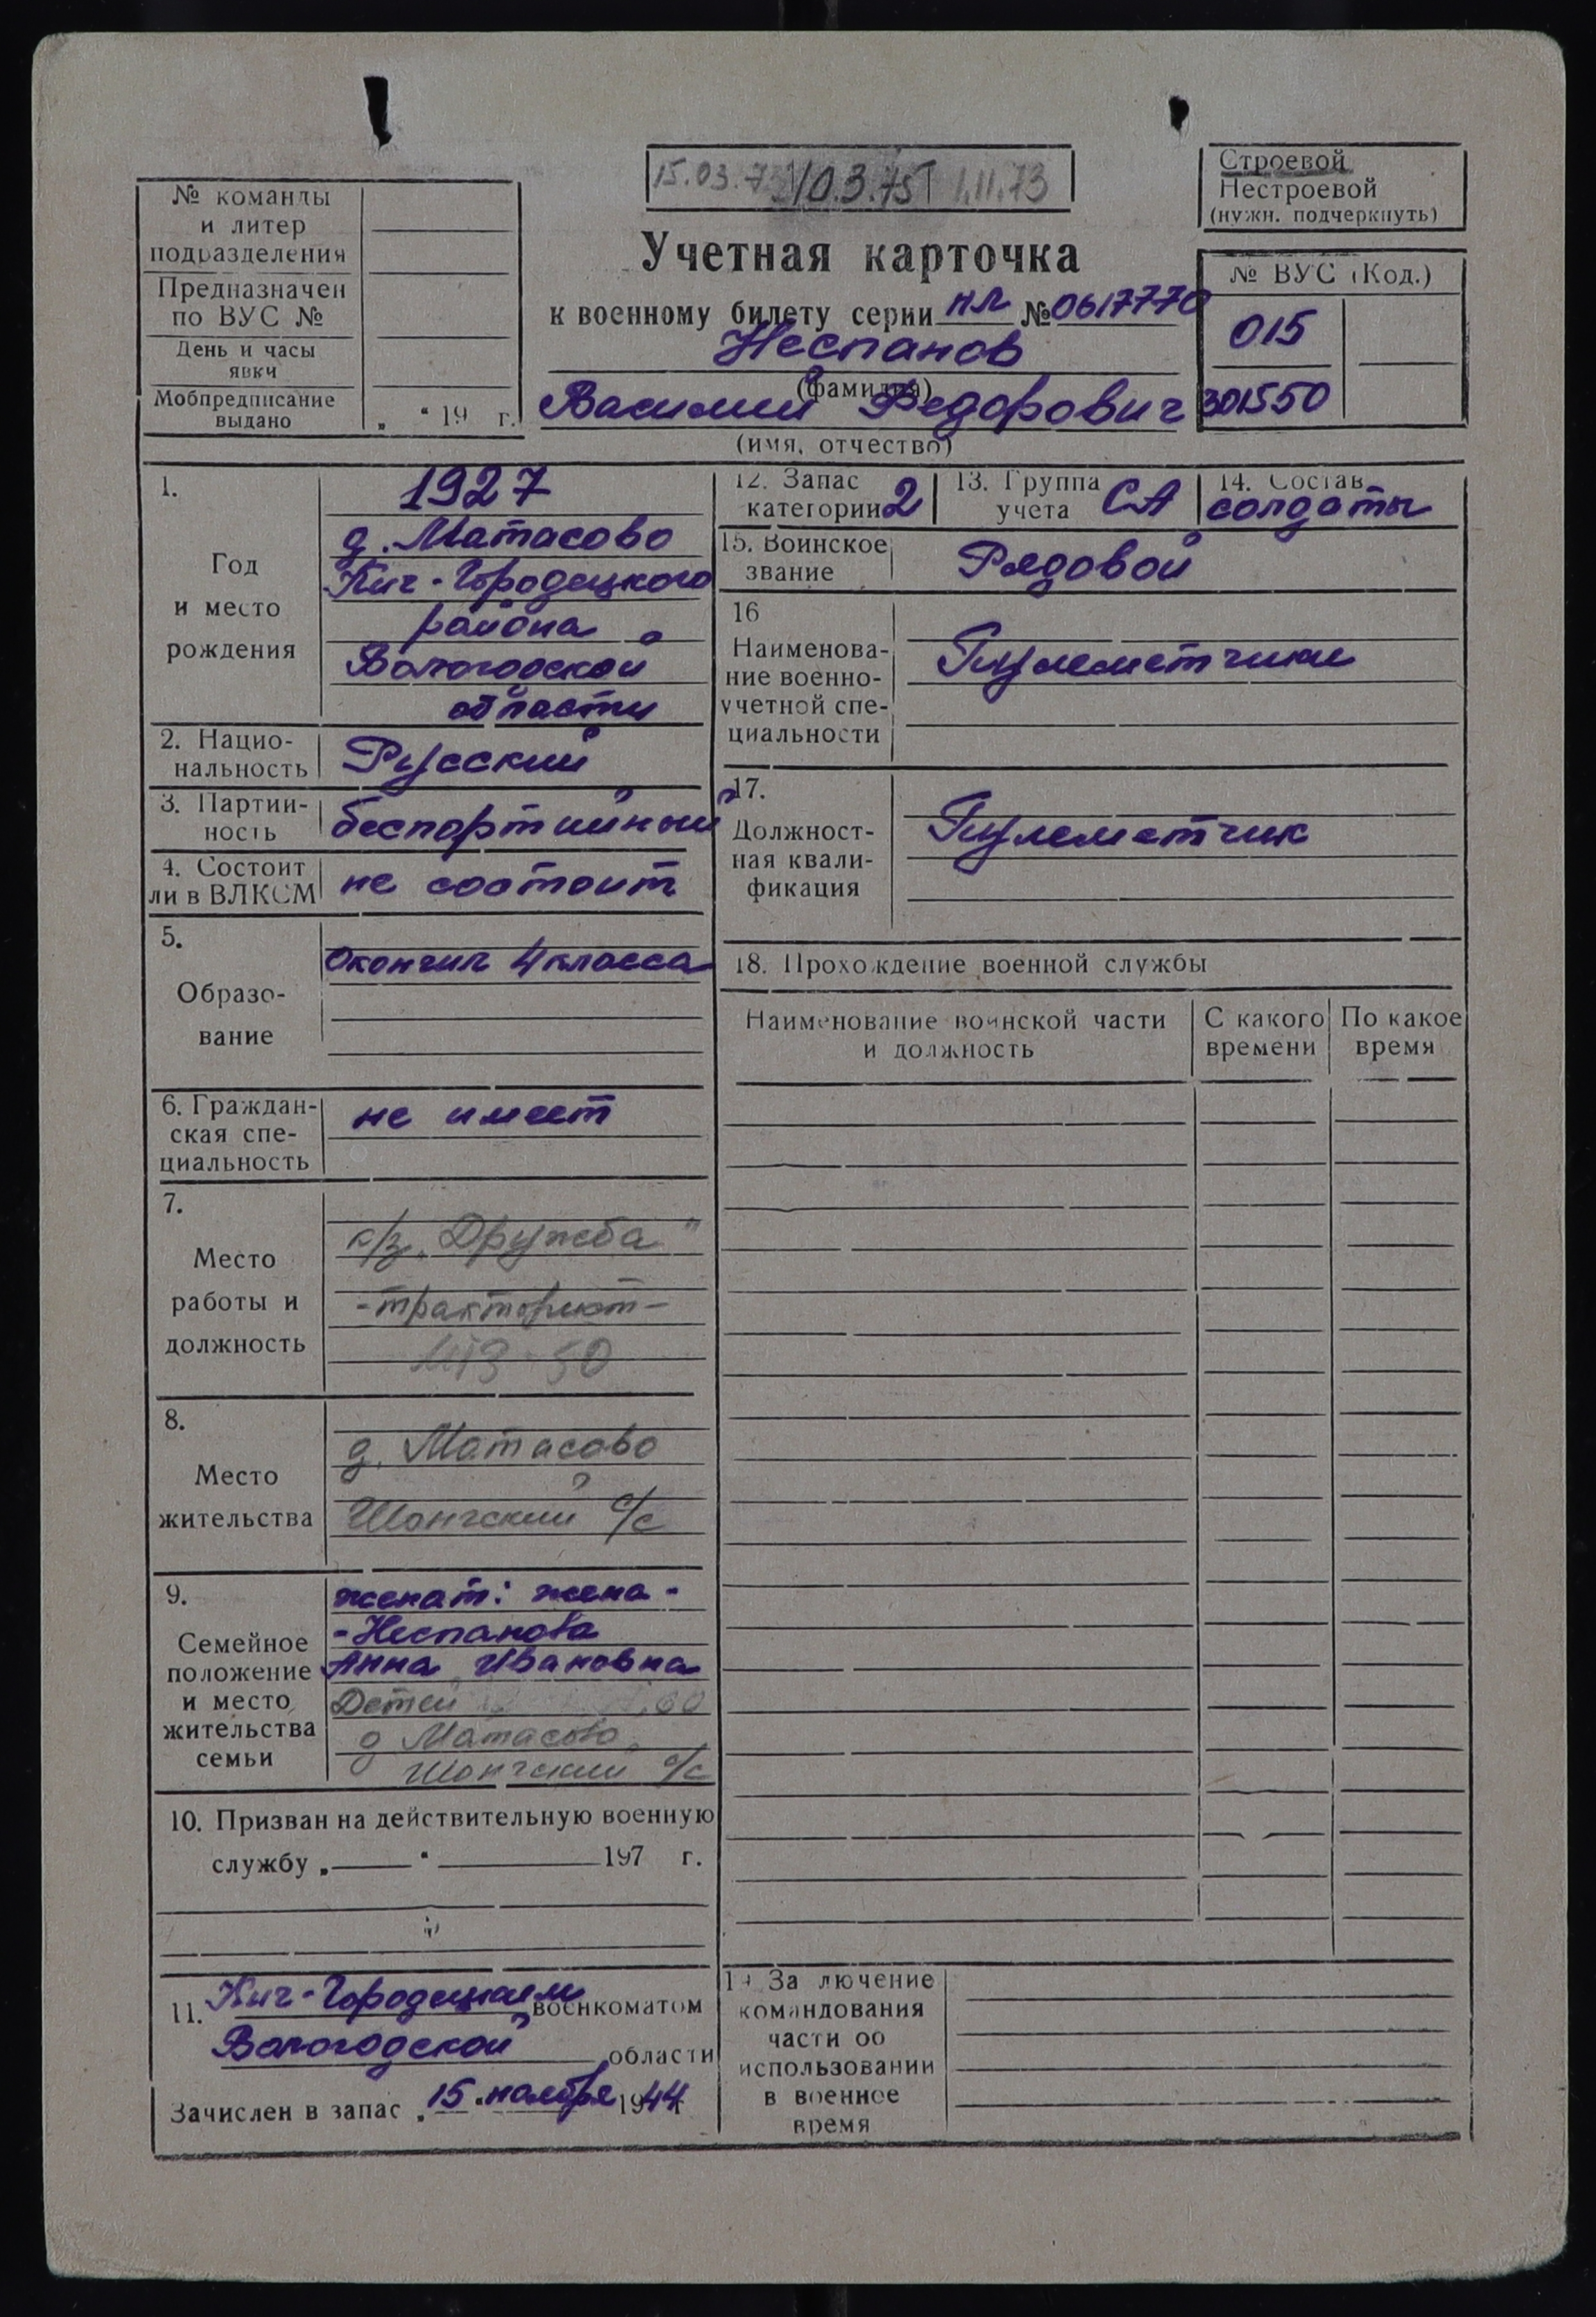 15.03.73 10.3.75 1.11.73
Строевой
Нестроевой
(нужн. подчеркнуть)
№ команды
и литер
подразделения
Предназначен
по ВУС №
День и часы
явки
Мобпредписание
выдано
„ “ 19 г.
Учетная карточка
к военному билету серии НЛ № 0617770
Неспанов
(фамилия)
Василий Федорович
(имя, отчество)
№ ВУС (Код.)
015
301550
1.
Год
и место
рождения
1927
д. Матасово
Кич-Городецкого
района
Вологодской
области
2. Нацио-
нальность
Русский
3. Партий-
ность
беспартийный
4. Состоит
ли в ВЛКСМ
не состоит
5.
Образо-
вание
Окончил 4 класса
6. Граждан-
ская спе-
циальность
не имеет
7.
Место
работы и
должность
к/з „Дружба"
-тракторист-
8.
Место
жительства
д. Матасово
Шонгский с/с
9.
Семейное
положение
и место
жительства
семьи
женат: жена -
-Неспанова
Анна Ивановна
Детей
д Матасово
Шонгский с/с
10. Призван на действительную военную
службу „ “ 197 г.
11. Кич-Городецким военкоматом
Вологодской области
Зачислен в запас „15 “ ноября 1944 г
12. Запас
категории 2
13. Группа
учета СА
14. Состав
солдаты
15. Воинское
звание
Рядовой
16
Наименова-
ние военно-
учетной спе-
циальности
Пулеметчики
17.
Должност-
ная квали-
фикация
Пулеметчик
18. Прохождение военной службы
Наименование воинской части
и должность
С какого
времени
По какое
время
19 Заключение
командования
части об
использовании
в военное
время